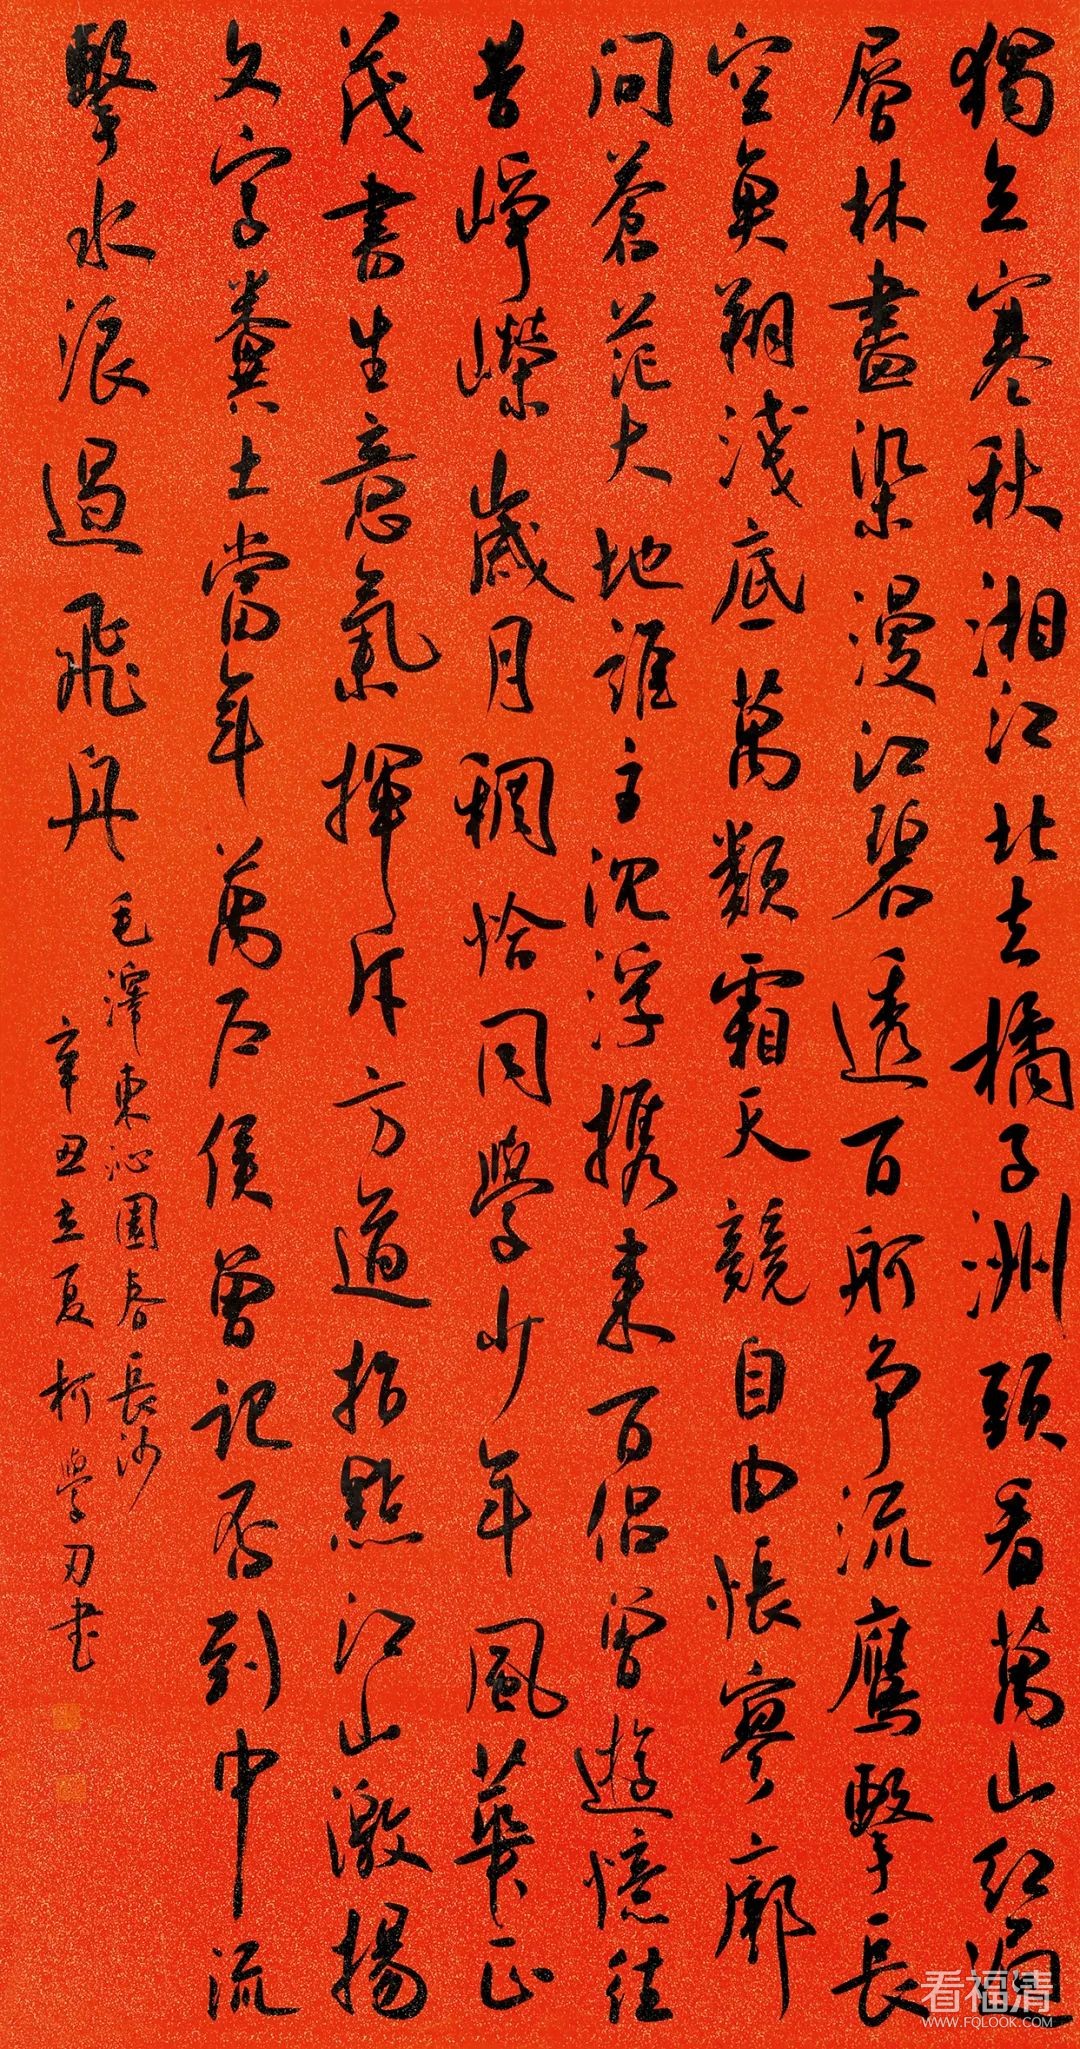 獨立寒秋湘江北去橘子洲頭看萬山紅遍
層林盡染漫江碧透百舸争流鷹擊長
空魚翔淺底萬類霜天競自由悵寥廓
問蒼茫大地誰主沈浮携來百侣曾遊憶往
昔崢嶸歲月稠恰同學少年風華正
茂書生意氣揮斥方遒指點江山激揚
文字糞土當年萬户侯曾記否到中流
擊水浪遏飛舟
毛澤東沁園春長沙
辛丑立夏柯學刃書
看福清
WWW.FQLOOK.COM